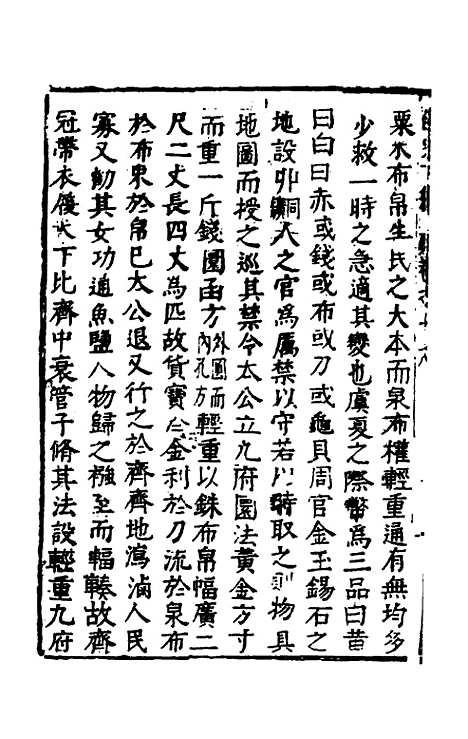 粟米布帛生民之大本而泉布權輕重通有無均多
少救一時之急適其變也虞夏之際幣為三品曰黃
曰白曰赤或錢或布或刀或龜貝周官金玉錫石之
地設丱人之官為厲禁以守若以時取之則物具
地圖而授之巡其禁令太公立九府圜法黃金方寸
而重一斤錢圜函方外圜而內孔方輕重以銖布帛幅廣二
尺二丈長四丈為匹故貨寶於金利於刀流於泉布
於布束於帛已太公退又行之於齊齊地潟滷人民
寡又勸其女功通魚鹽人物歸之襁至而輻輳故齊
冠帶衣履天下比齊中衰管子脩其法設輕重九府